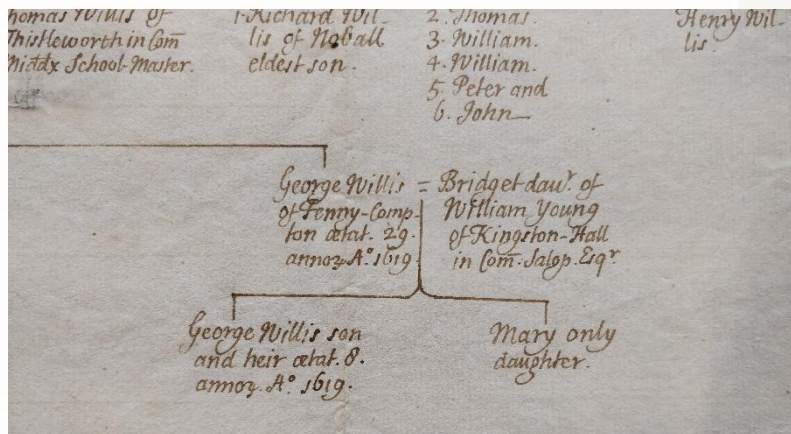 Thomas Willis of
Thistleworth in Com̄
Middx School-Master.
1. Richard Wil-
lis of Noball
eldest son.
2. Thomas.
3. William.
4. William.
5. Peter and
6. John—
Henry Wil-
lis.
George Willis =
of Fenny-Comp-
ton ætat. 29.
annoꝝ Aº 1619
Bridget dauʳ. of
William Young
of Kingston-Hall
in Com̄. Salop. Esqʳ
George Willis son
and heir ætat. 8.
annoꝝ. Aº 1619.
Mary only
daughter.